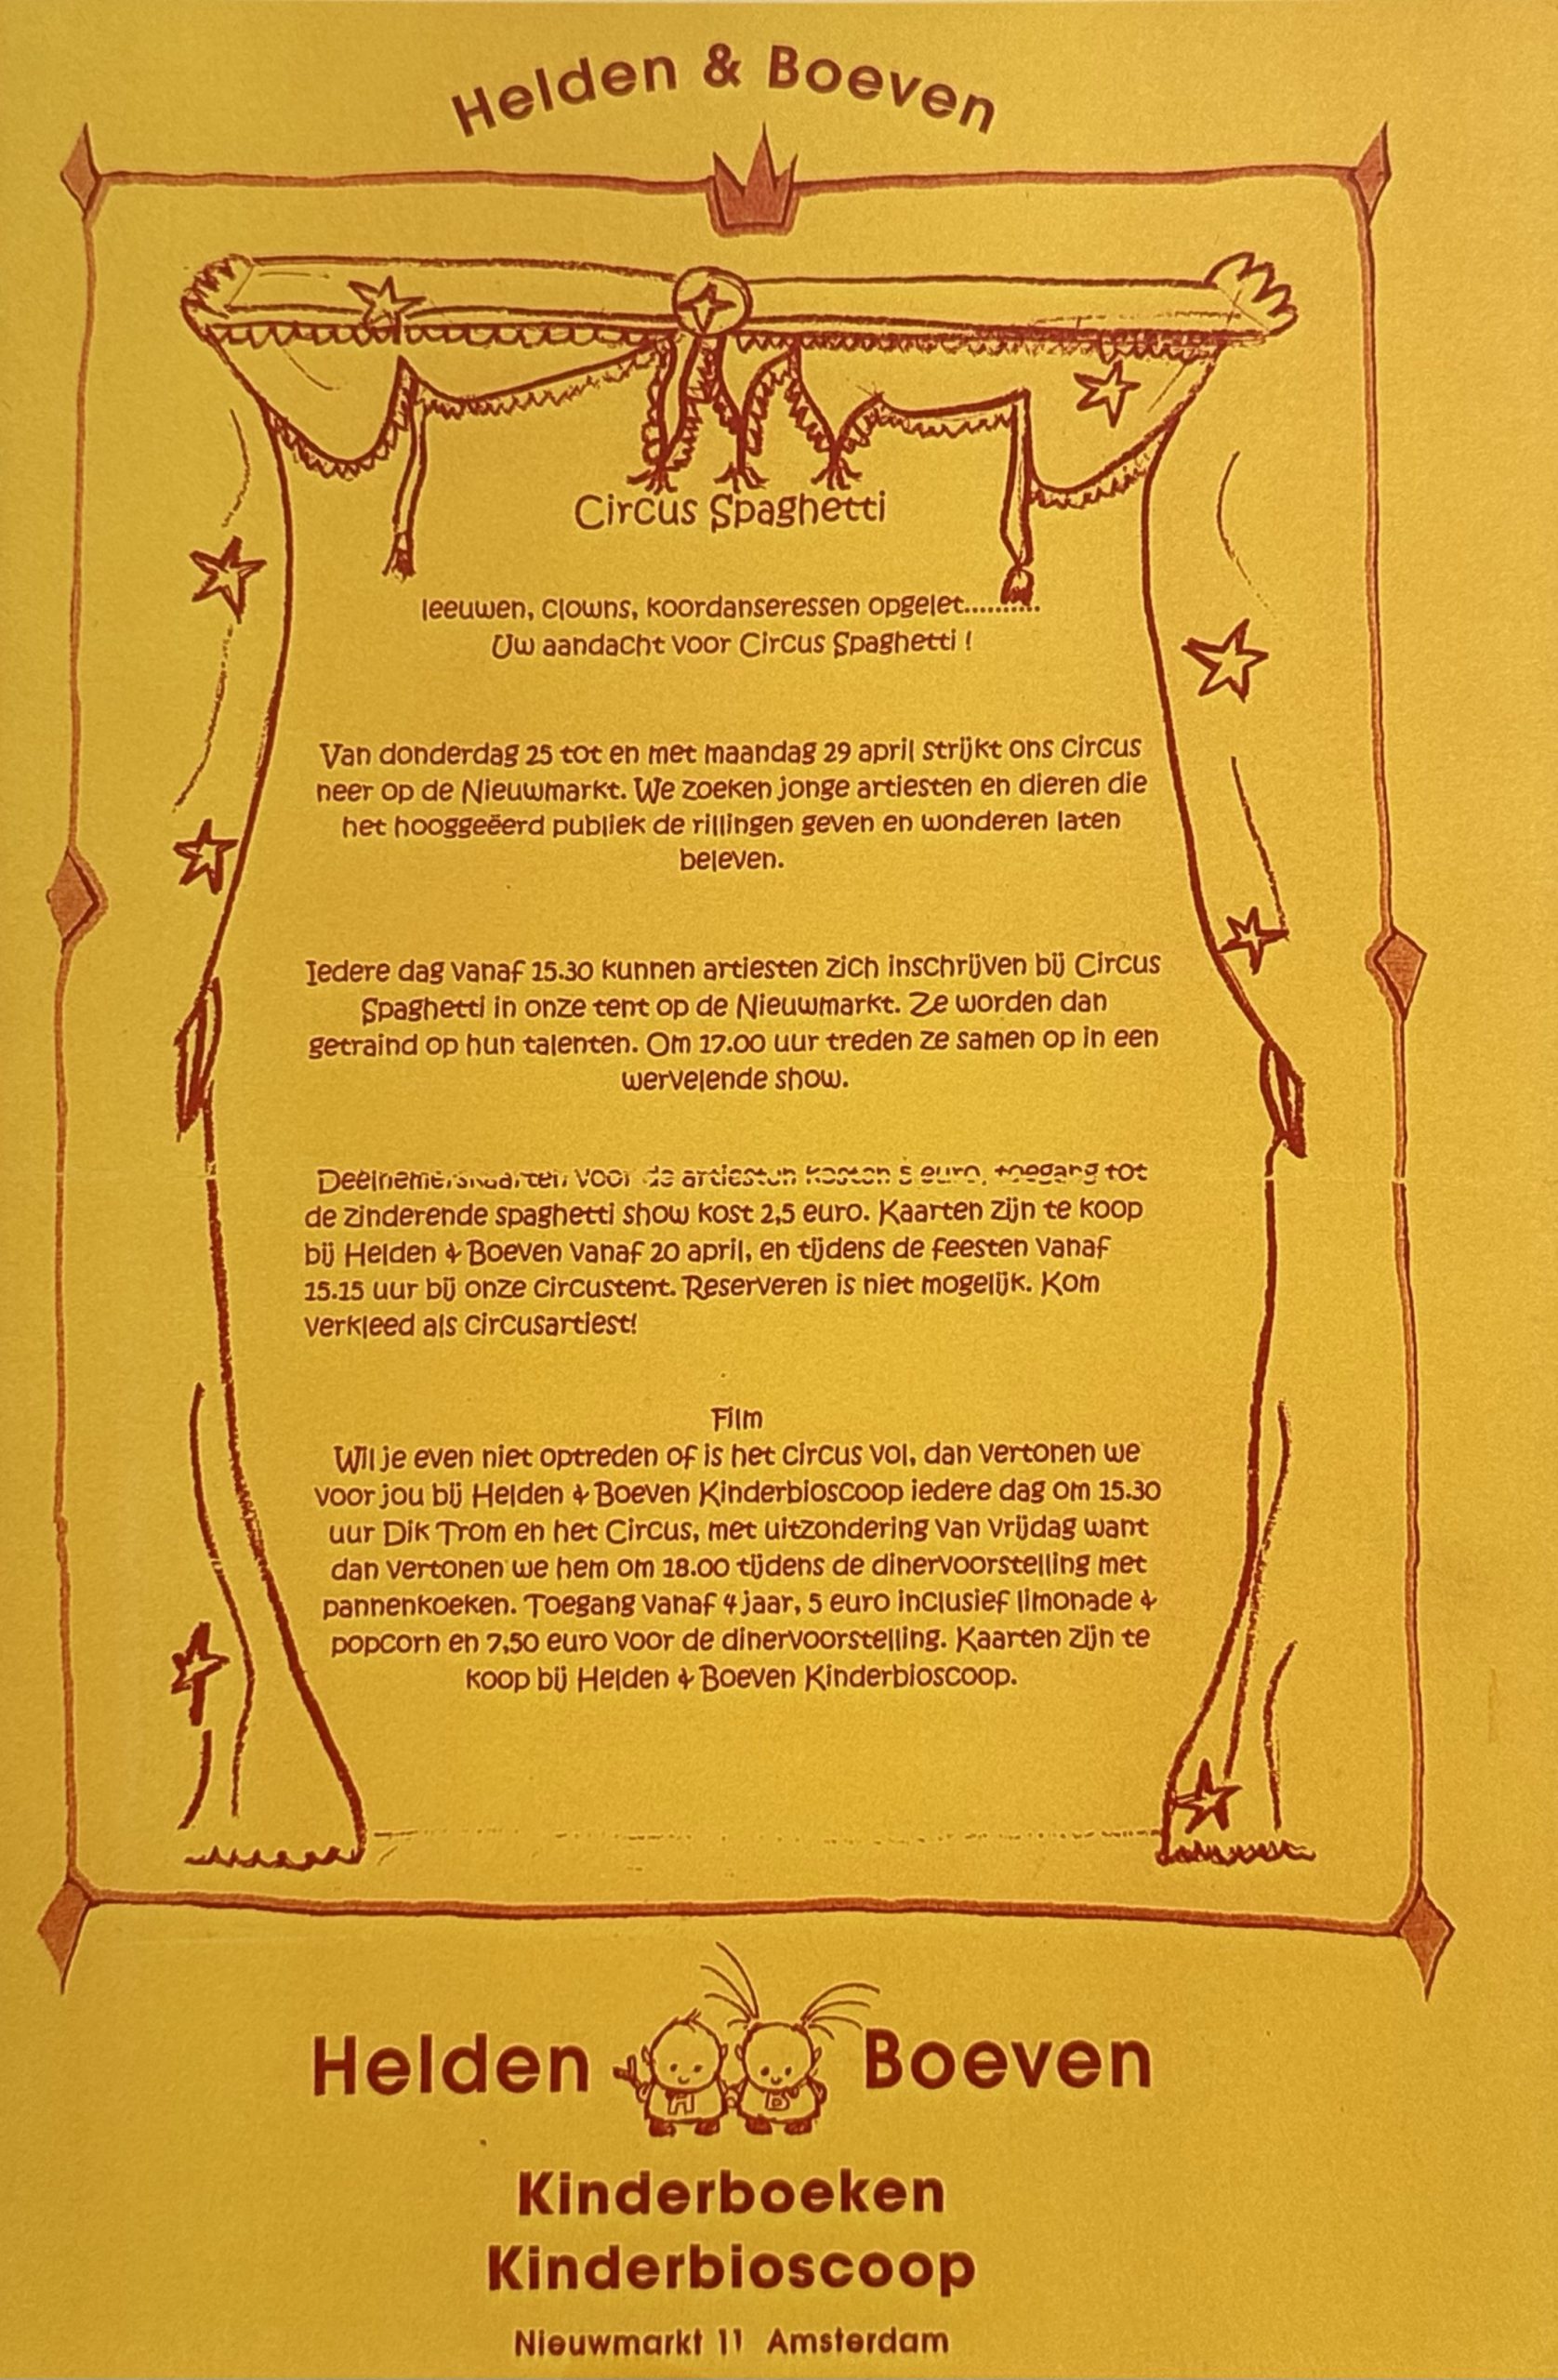 Helden & Boeven
Circus Spaghetti
leeuwen, clowns, koordanseressen opgelet..........
Uw aandacht voor Circus Spaghetti !
Van donderdag 25 tot en met maandag 29 april strijkt ons circus
neer op de Nieuwmarkt. We zoeken jonge artiesten en dieren die
het hooggeëerd publiek de rillingen geven en wonderen laten
beleven.
Iedere dag vanaf 15.30 kunnen artiesten zich inschrijven bij Circus
Spaghetti in onze tent op de Nieuwmarkt. Ze worden dan
getraind op hun talenten. Om 17.00 uur treden ze samen op in een
wervelende show.
Deelnemerskaarten voor de artiesten kosten 5 euro, toegang tot
de zinderende spaghetti show kost 2,5 euro. Kaarten zijn te koop
bij Helden & Boeven vanaf 20 april, en tijdens de feesten vanaf
15.15 uur bij onze circustent. Reserveren is niet mogelijk. Kom
verkleed als circusartiest!
Film
Wil je even niet optreden of is het circus vol, dan vertonen we
voor jou bij Helden & Boeven Kinderbioscoop iedere dag om 15.30
uur Dik Trom en het Circus, met uitzondering van vrijdag want
dan vertonen we hem om 18.00 tijdens de dinervoorstelling met
pannenkoeken. Toegang vanaf 4 jaar, 5 euro inclusief limonade &
popcorn en 7,50 euro voor de dinervoorstelling. Kaarten zijn te
koop bij Helden & Boeven Kinderbioscoop.
Helden Boeven
H B
Kinderboeken
Kinderbioscoop
Nieuwmarkt 11 Amsterdam